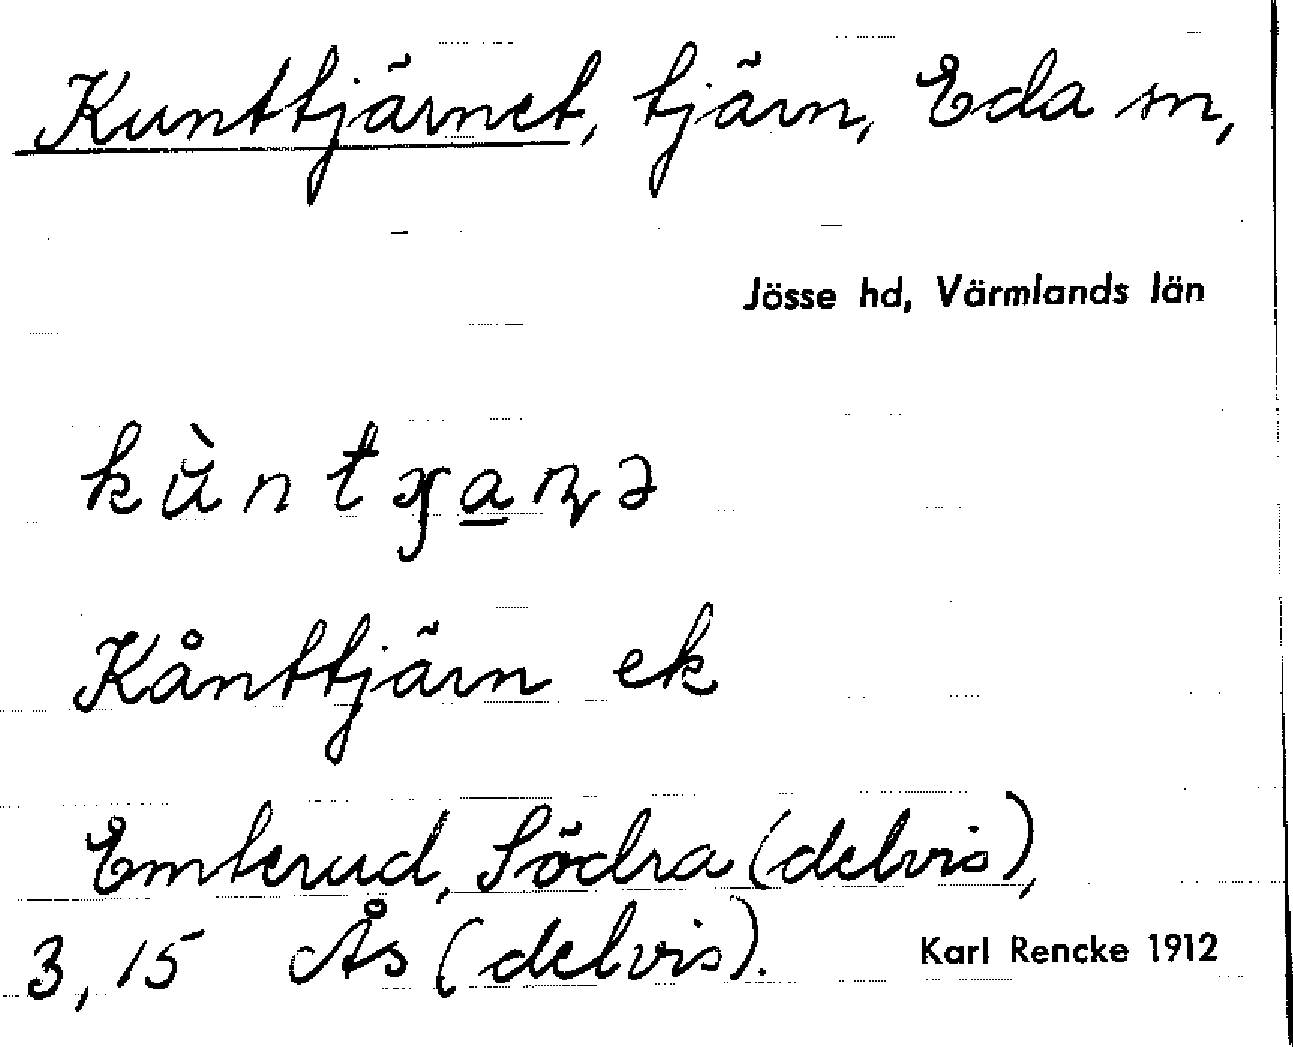 Kunttjärnet, tjärn, Eda sn,
Jösse hd, Värmlands län
Kånttjärn ek
Emterud, Södra (delvis),
3, 15 Ås (delvis).
Karl Rencke 1912